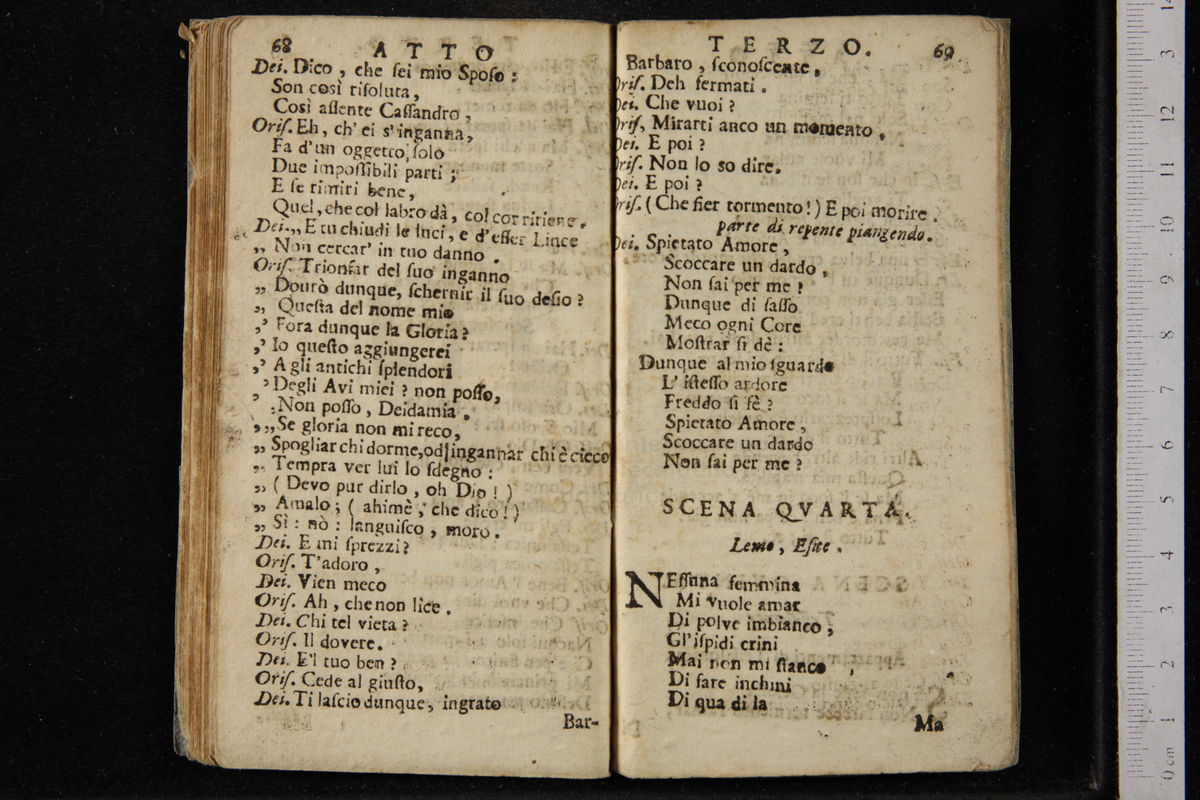 68 ATTO
Dei. Dico, che ſei mio Spoſo:
Son così riſoluta,
Così aſſente Caſſandro,
Oriſ. Eh, ch'ei s'inganna,
Fa d'un oggetto ſolo
Due impoſſibili parti;
E ſe rimiri bene,
Quel, che col labro dà, col cor ritiene.
Dei. „ E tu chiudi le luci, e d'eſſer Lince
„ Non cercar' in tuo danno.
Oriſ. Trionfar del ſuo inganno
„ Dourò dunque, ſchernir il ſuo deſio?
„ Queſta del nome mio
„ Fora dunque la Gloria?
„ Io queſto aggiungerei
„ Agli antichi ſplendori
„ Degli Avi miei? non poſſo,
Non poſſo, Deidamia.
„ „ Se gloria non mi reco,
„ Spogliar chi dorme, od ingannar chi è cieco
„ Tempra ver lui lo ſdegno:
„ (Devo pur dirlo, oh Dio!)
„ Amalo; (ahimè, che dico!)
„ Sì: nò: languiſco, moro.
Dei. E mi ſprezzi?
Oriſ. T'adoro,
Dei. Vien meco
Oriſ. Ah, che non lice.
Dei. Chi tel vieta?
Oriſ. Il dovere.
Dei. E'l tuo ben?
Oriſ. Cede al giuſto,
Dei. Ti laſcio dunque, ingrato
Bar-
TERZO. 69
Barbaro, ſconoſcente,
Oriſ. Deh fermati.
Dei. Che vuoi?
Oriſ, Mirarti anco un momento,
Dei. E poi?
Oriſ. Non lo so dire.
Dei. E poi?
Oriſ. (Che fier tormento!) E poi morire.
parte di repente piangendo.
Dei. Spietato Amore,
Scoccare un dardo,
Non ſai per me?
Dunque di ſaſſo
Meco ogni Core
Moſtrar ſi dè:
Dunque al mio ſguardo
L'iſteſſo ardore
Freddo ſi fè?
Spietato Amore,
Scoccare un dardo
Non ſai per me?
SCENA QVARTA.
Lemo, Eſite.
NEſſuna femmina
Mi vuole amar
Di polve imbianco,
Gl'iſpidi crini
Mai non mi ſtanco
Di fare inchini
Di qua di la
Ma
14
3
12
11
10
9
8
7
6
5
4
3
2
1
0 cm